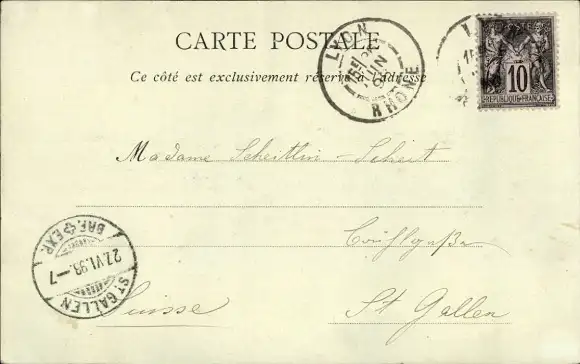 CARTE POSTALE
Ce côté est exclusivement réservé à l'adresse
LYON
JUIN
RHÔNE
10
REPUBLIQUE FRANÇAISE
Madame Scheitlin-Scheit
St Gallen
Suisse
BRF. EXP.
27.VI.98.-7
ST GALLEN